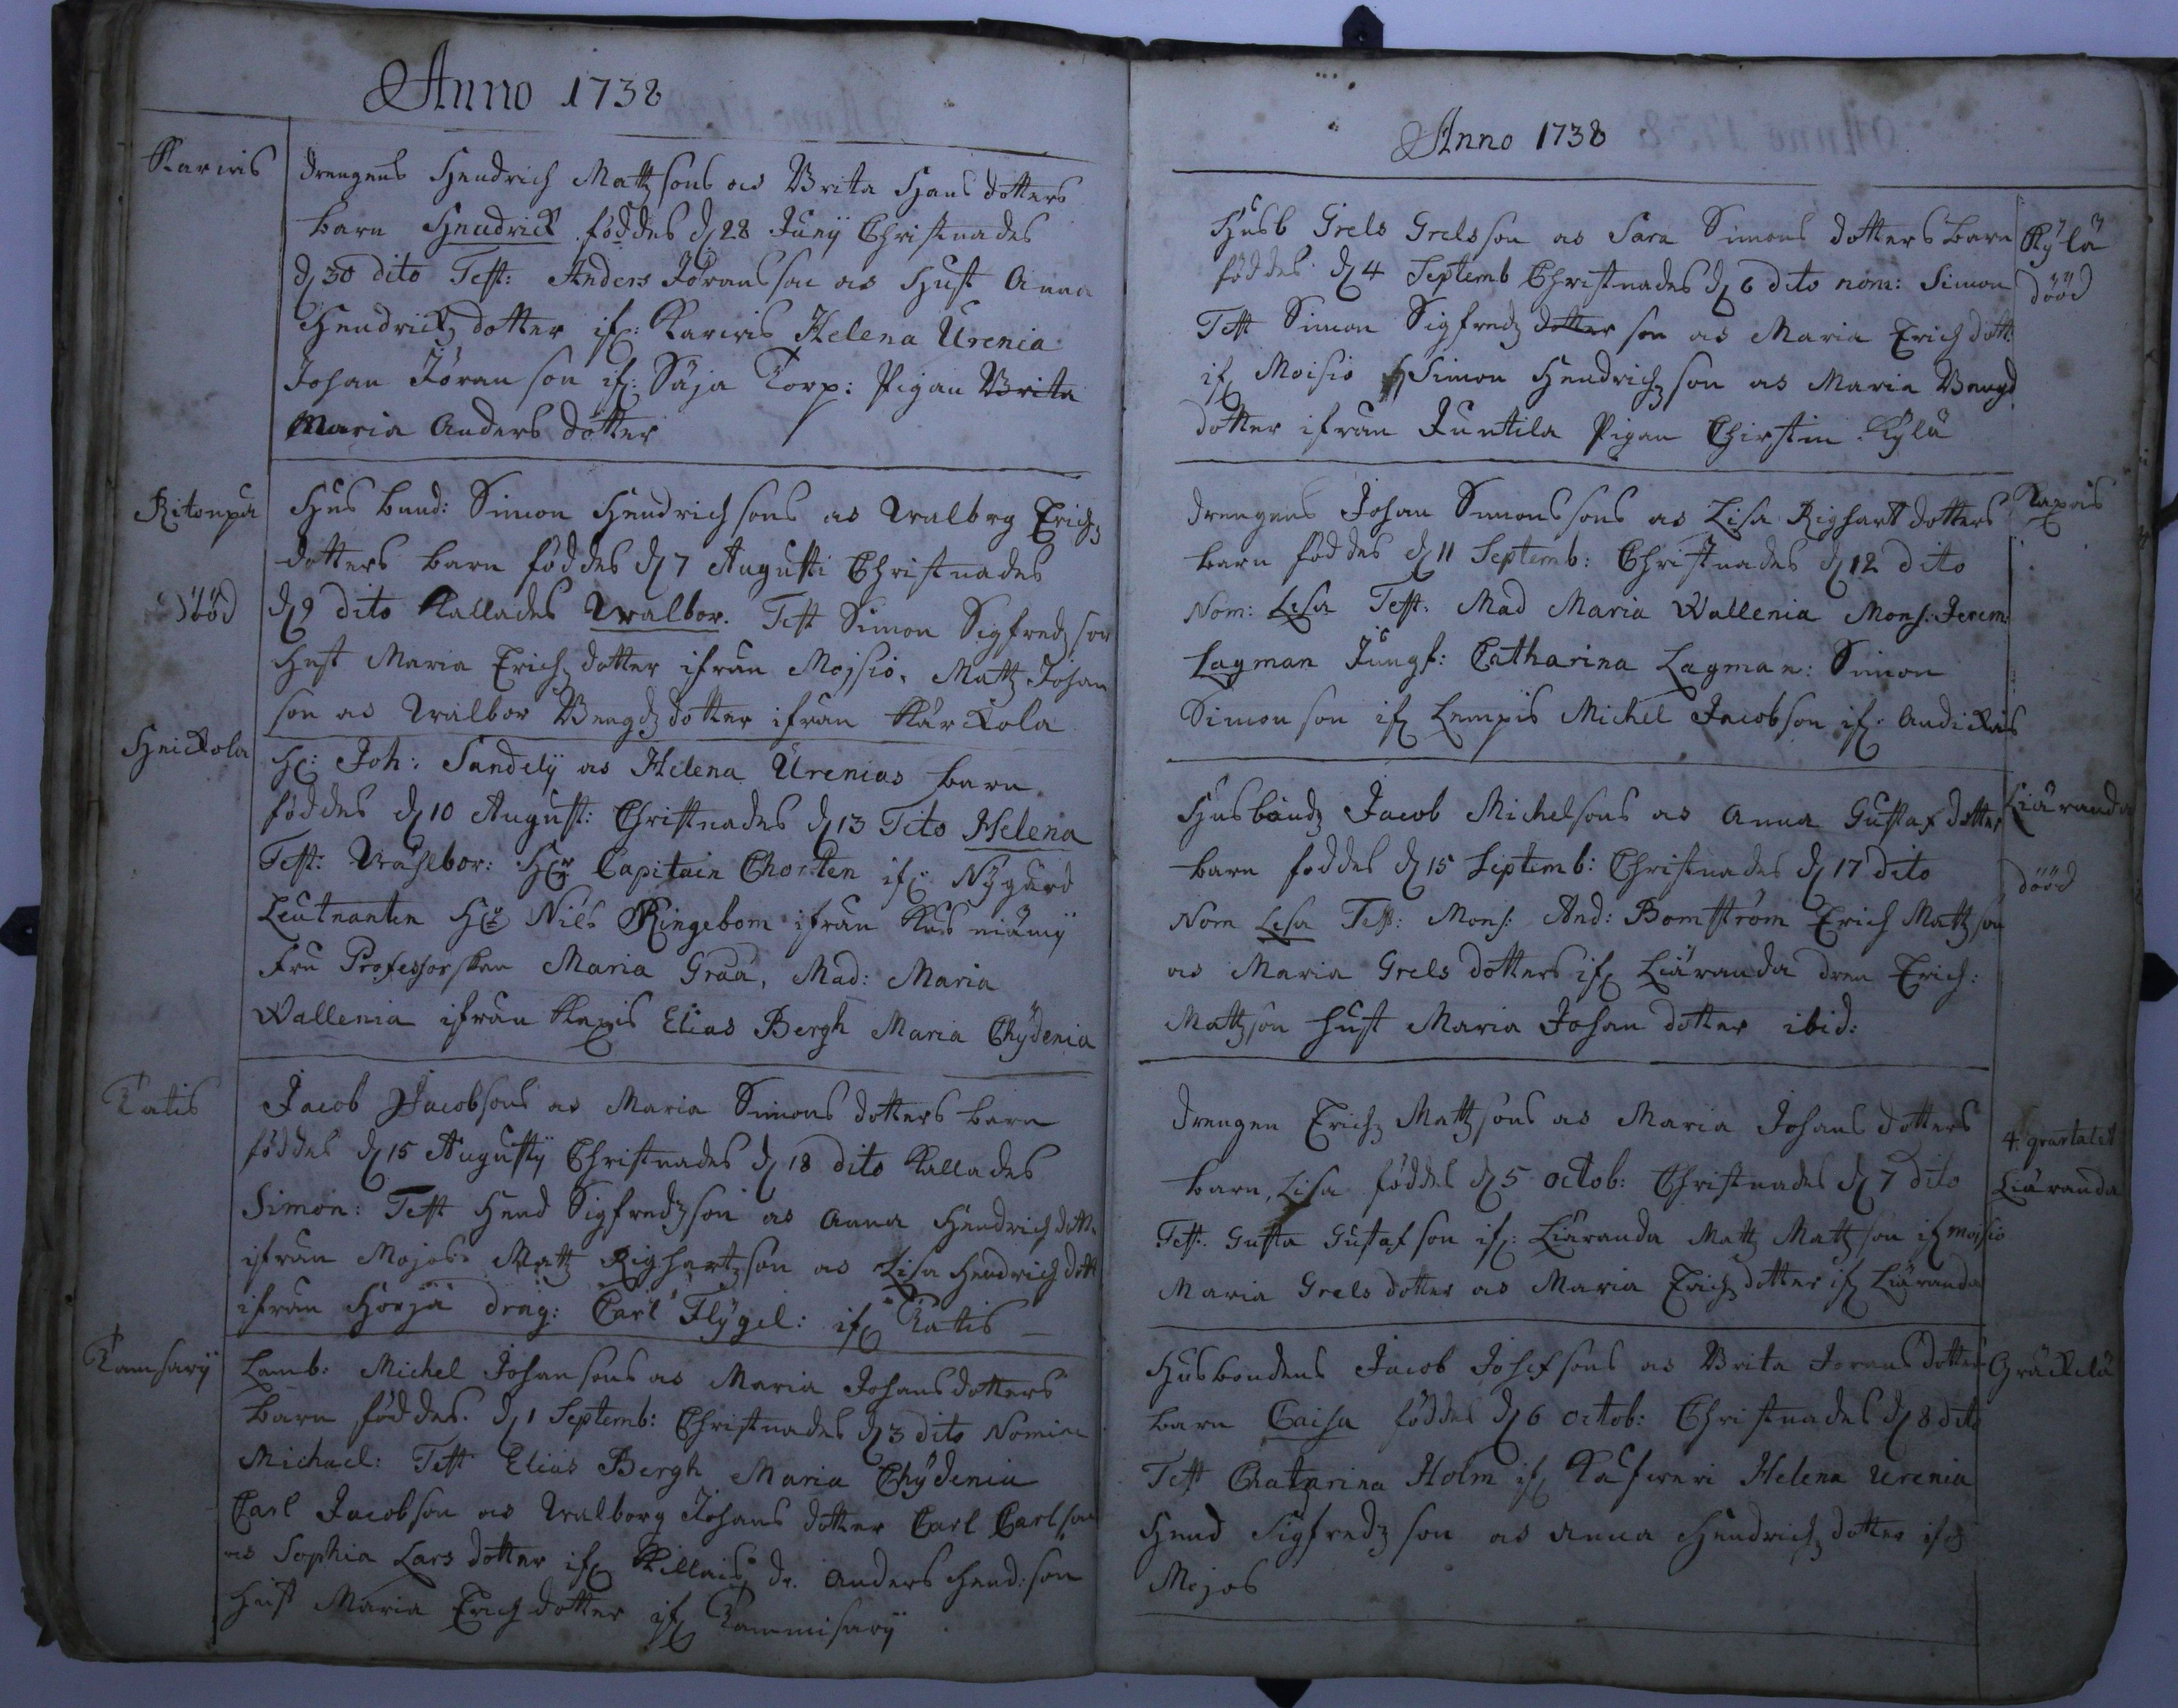 Anno 1738
Karwis
Drengens Hendrich Mattzsons as Brita Hansdotters
barn Hendrick föddes d. 28 Junij Christnades
d. 30 dito Test: Anders Jöransson as Hust Anna
Hendrickz dotter if: Karwis Helena Urenia
Johan Jöranson if: Säja Torp: Pigan Brita
Maria Anders dotter
Ritonpä
Husbund: Simon Hendrichsons as Walbrg Erichz
dotters barn föddes d. 7 Augusti Christnades
dööd
d. 9 dito kallades Walbor. Test Simon Sigfredzson
Hust Maria Erichz dotter ifrån Mojsio, Mattz Johan
son as Walbor Bengdz dotter ifrån Kärckola
Heickola
H: Joh: Sandelij as Helena Urenias barn
föddes d. 10 August: Christnades d. 13 Dito Helena
Test: Wählbor: Hr Capitain Chorten if: Nÿgård
Leutnanten Hr Nils Ringebom ifrån Kusniämij
Fru Professorskan Maria Graa, Mad: Maria
Wallenia ifrån Kaxis Elias Bergh Maria Chÿdenia
Tatis
Jacob Jacobsons as Maria Simons dotters barn
föddes d. 15 Augustij Christnades d. 18 dito kallades
Simon: Test Hend Sigfredzson as Anna Hendrich dott.
ifrån Mojos. Mattz Righartzson as Lisa Hendrich dott
ifrån Horja drag: Carl Flÿgel: if. Tatis
Tamsarij
Lamb: Michel Johansons as Maria Johansdotters
barn föddes. d. 1 Septemb: Christnades d. 3 dito Nomine
Michael: Test Elias Bergh Maria Chÿdenia
Carl Jacobson as Walborg Johans dotter Carl Carlson
as Sophia Lars dotter if. Killais dr. Anders Hend:son
Hust Maria Erich dotter if. Tammisarij
Anno 1738
Husb Grels Grelsson as Sara Simons dotters barn
Kÿlä
föddes d. 4 Septemb Christnades d. 6 dito nom: Simon
dööd
Test Simon Sigfredz dotter son as Maria Erich dott:
if. Moisio Simon Hendrichzson as Maria Bengd
dotter ifrån Juntila Pigan Chirstin Kÿlä
Drengens Johan Simonssons as Lisa Righart dotters
Kaxois
barn föddes d. 11 Septemb: Christnades d. 12 dito
Nom: Lisa Test. Mad Maria Wallenia Mons: Jerem:
Lagman Jungf: Catharina Lagman: Simon
Simonson if. Lempis Michel Jacobson if. Andickais
Husbondz Jacob Michelsons as Anna Gustaf dotter
Liäranda
barn foddes d. 15 Septemb: Christnades d. 17 dito
dööd
Nom Lisa Test: Mons: And: Bomström Erich Mattzson
as Maria Grels dotters if. Liäranda dren Erich:
Mattzson Hust Maria Johan dotter ibid:
Drengen Erichz Mattzsons as Maria Johans dotters
4 quartalet
barn, Lisa föddes d. 5 octob: Christnades d. 7 dito
Liäranda
Test. Gusta Gustafson if: Liäranda Mattz Mattzson if mojsio
Maria Grels dotter as Maria Erichz dotter if. Liäranda
Husbondens Jacob Josefsons as Brita Jorans dotter
Gräckilä
barn Caisa föddes d. 6 octob: Christnades d. 8 dito
Test Chatarina Holm if. Kasweri Helena Urenia
Hend Sigfredzson as Anna Hendrich dotter if
Mojos